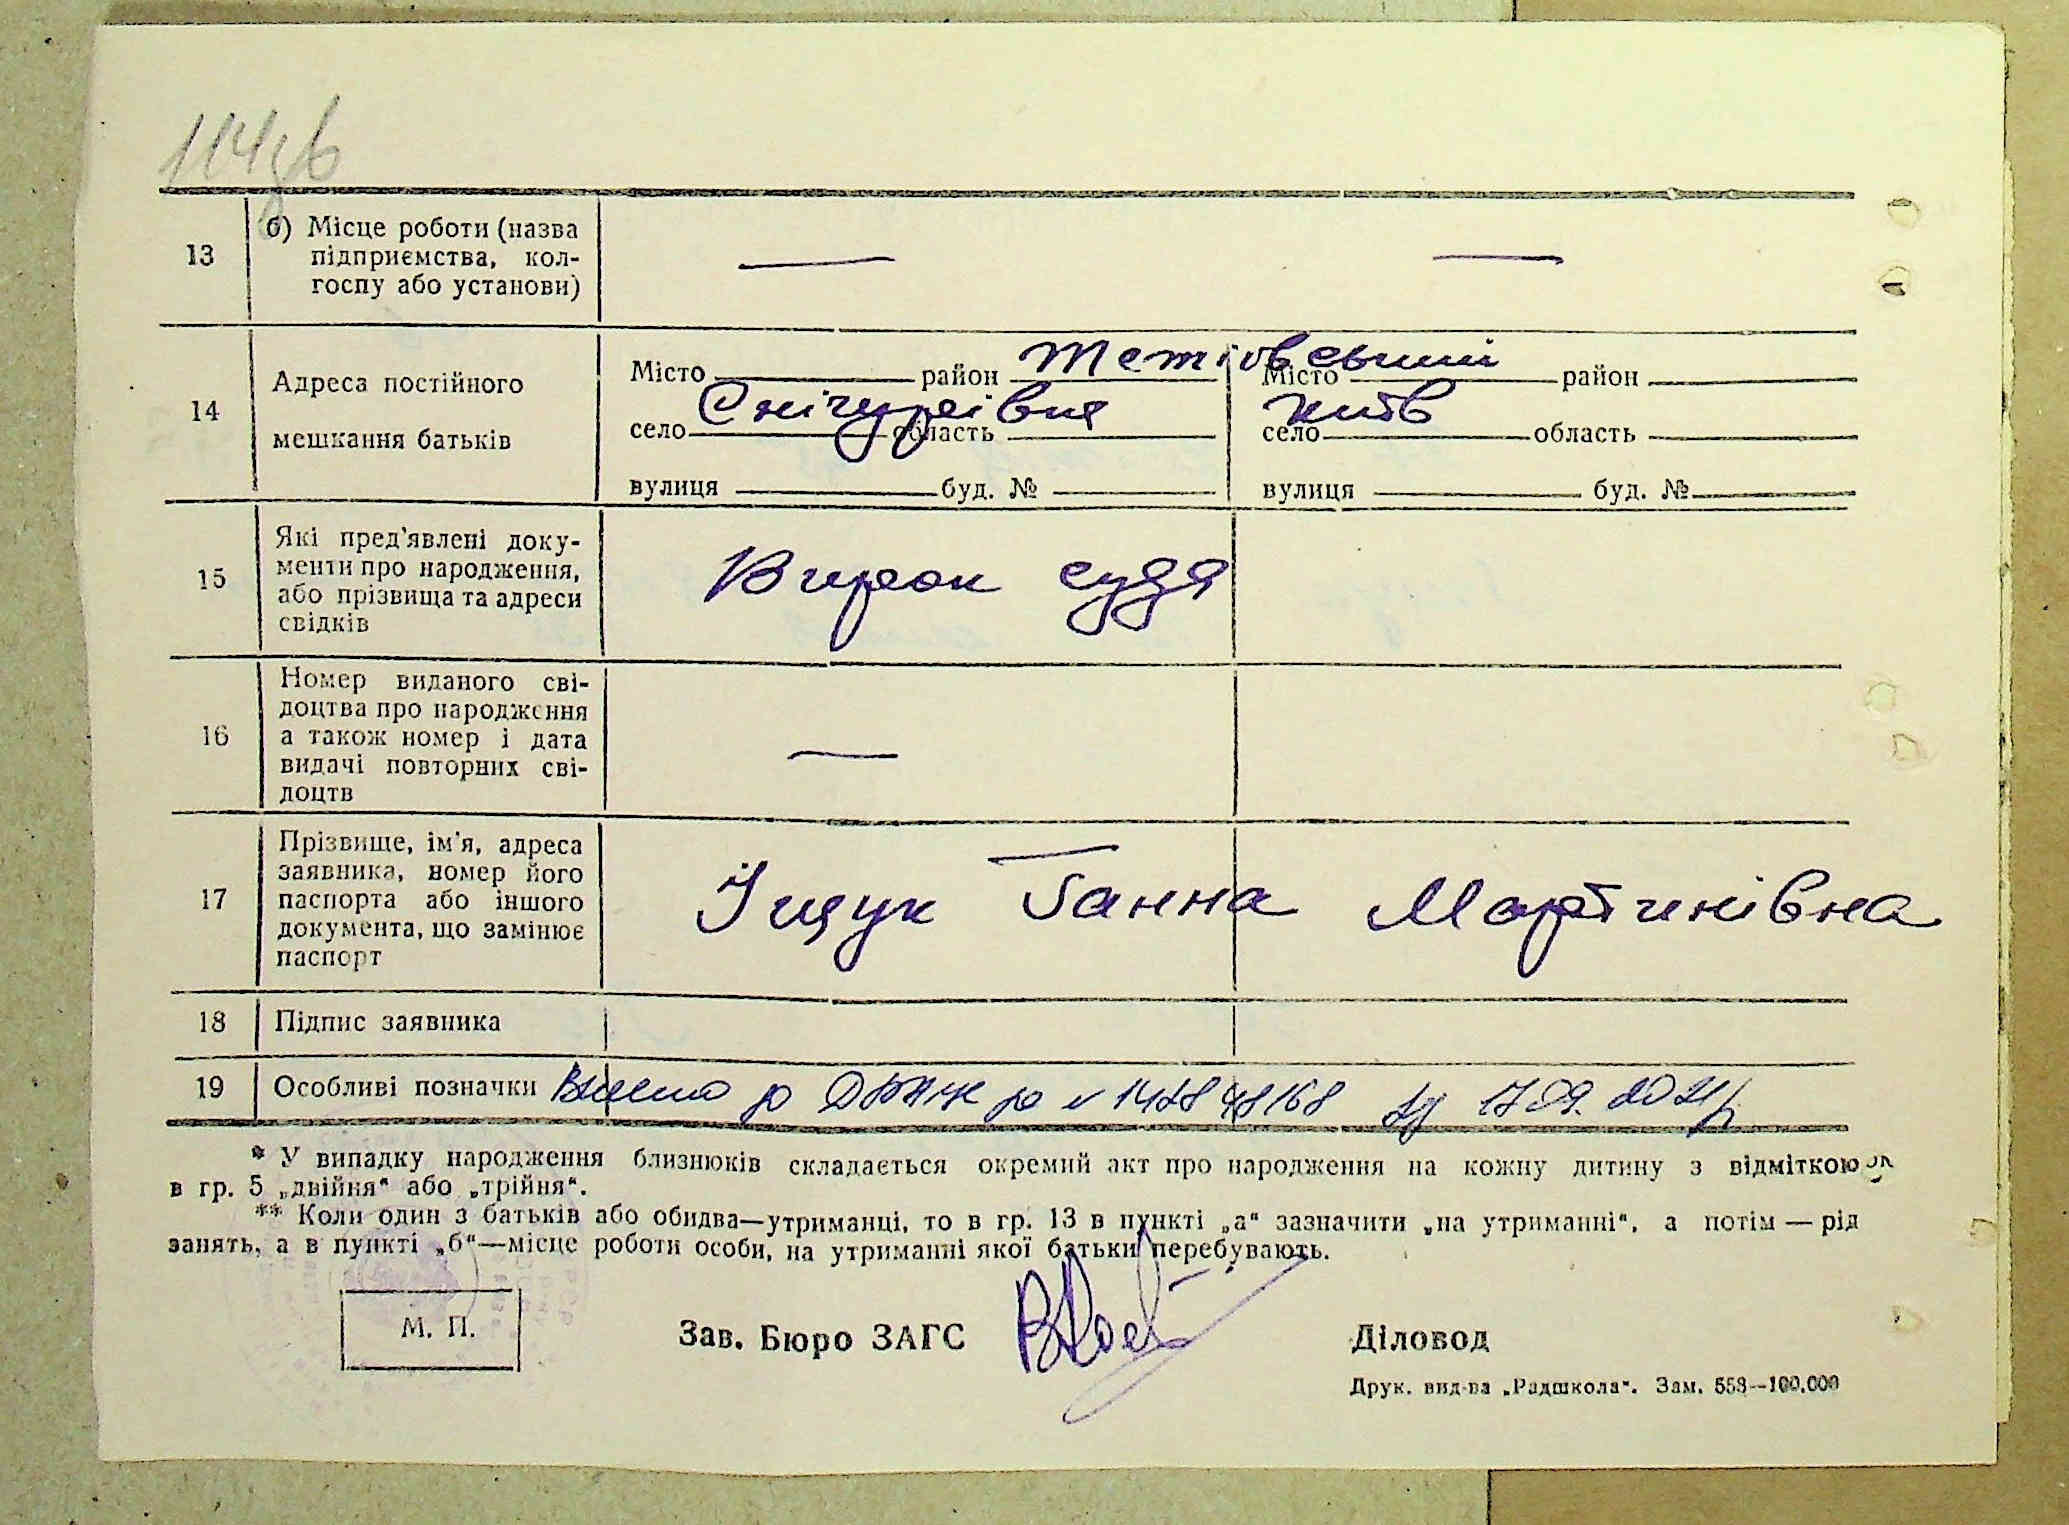 114зв
13 б) Місце роботи (назва
підприємства, кол-
госпу або установи) — —
14 Адреса постійного
мешкання батьків
Місто район Тетіовський Місто район
село Снігурівка область село Київ область
вулиця буд. № вулиця буд. №
15 Які пред'явлені доку-
менти про народження,
або прізвища та адреси
свідків
Вирок суда
16 Номер виданого сві-
доцтва про народження
а також номер і дата
видачі повторних сві-
доцтв
—
17 Прізвище, ім'я, адреса
заявника, номер його
паспорта або іншого
документа, що замінює
паспорт
Іщук Ганна Мартинівна
18 Підпис заявника
19 Особливі позначки Внесено до ДРАЦС 17.09.2021р
* У випадку народження близнюків складається окремий акт про народження на кожну дитину з відміткою
в гр. 5 „двійня“ або „трійня“.
** Коли один з батьків або обидва—утриманці, то в гр. 13 в пункті „а“ зазначити „на утриманні“, а потім — рід
занять, а в пункті „б“—місце роботи особи, на утриманні якої батьки перебувають.
М. П. Зав. Бюро ЗАГС Діловод
Друк. вид-ва „Радшкола“. Зам. 553—100.000